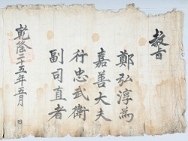 教旨
鄭弘淳為
嘉善大夫
行忠武衛
副司直者
乾隆二十五年五月